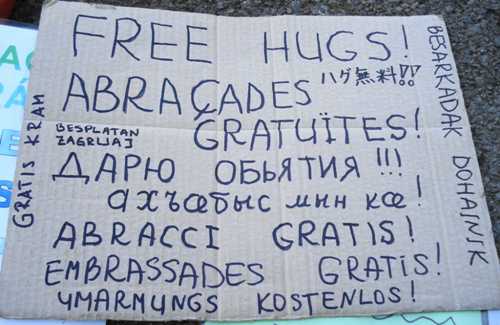 FREE HUGS!
ハグ無料!!
ABRAÇADES
GRATUÏTES!
BESPLATAN
ZAGRLJAJ
ДАРЮ ОБЬЯТИЯ!!!
ахъӕбыс мӕн кӕ!
ABRACCI GRATIS!
EMBRASSADES GRATiS!
UMARMUNGS KOSTENLOS!
GRATIS KRAM
BESARKADAK DOHAINIK